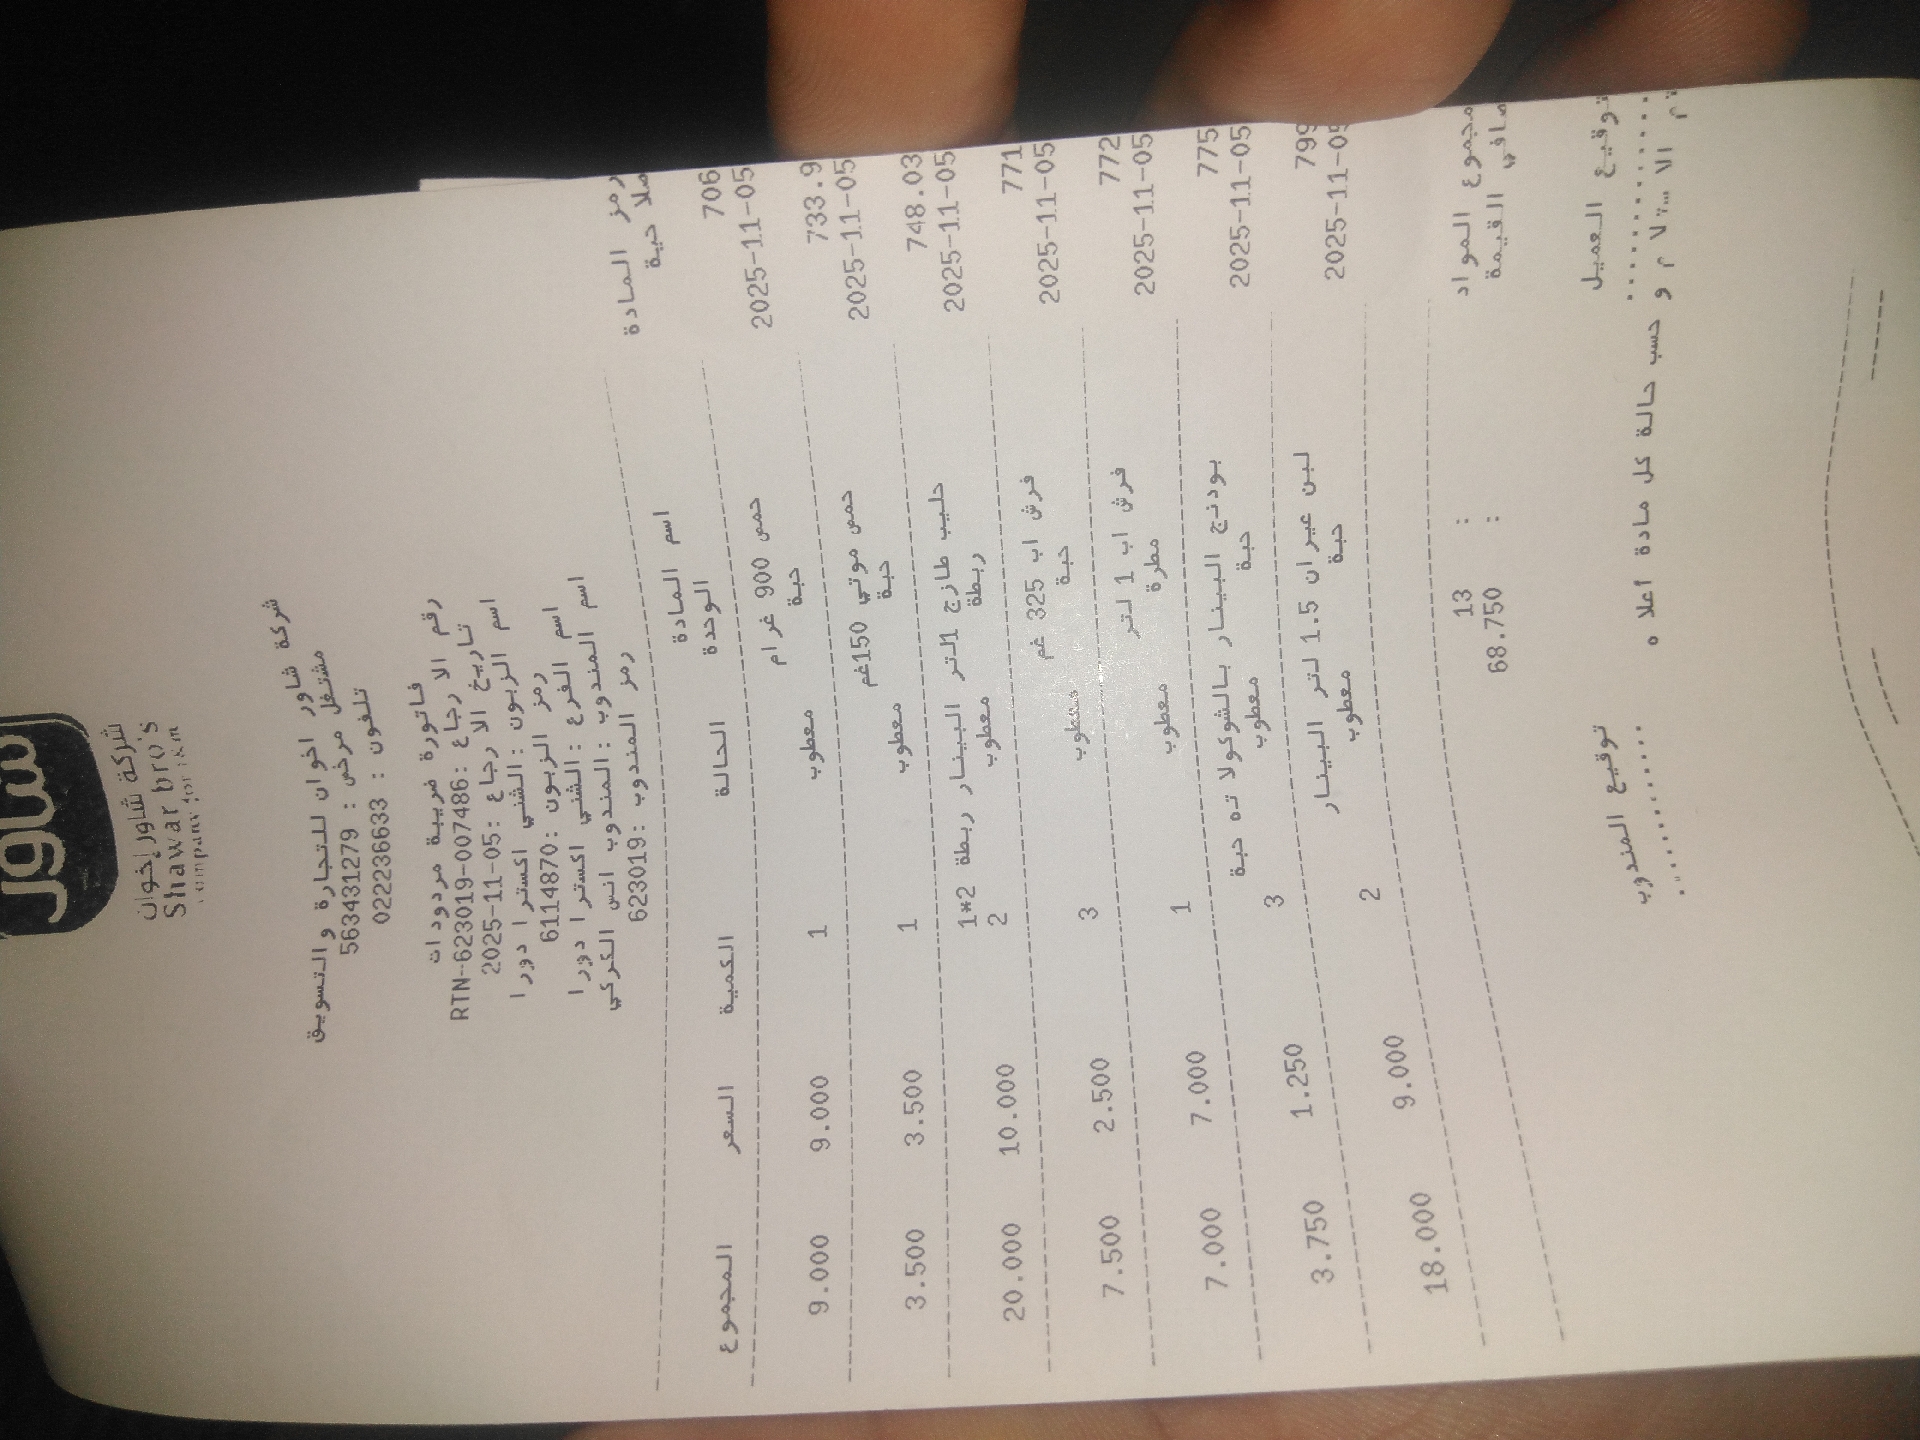 شاور
شركة شاور إخوان
Shawar bro's
company for t&m
شركة شاور اخوان للتجارة والتسويق
مشتغل مرخص : 563431279
تلفون : 022236633
فاتورة ضريبة مردودات
رقم الارجاع :RTN-623019-007486
تاريخ الارجاع :2025-11-05
اسم الزبون :الشني اكسترا دورا
رمز الزبون :6114870
اسم الفرع :الشني اكسترا دورا
اسم المندوب :المندوب انس الكركي
رمز المندوب :623019
رمز المادة اسم المادة
صلاحية الوحدة الحالة الكمية السعر المجموع
706 حمص 900 غرام
2025-11-05 حبة معطوب 1 9.000 9.000
733.9 حمص موتي 150غم
2025-11-05 حبة معطوب 1 3.500 3.500
748.03 حليب طازج 1لتر البينار ربطة 2*1
2025-11-05 ربطة معطوب 2 10.000 20.000
771 فرش اب 325 غم
2025-11-05 حبة معطوب 3 2.500 7.500
772 فرش اب 1 لتر
2025-11-05 مطرة معطوب 1 7.000 7.000
775 بودنج البينار بالشوكولاته حبة
2025-11-05 حبة معطوب 3 1.250 3.750
799 لبن عيران 1.5 لتر البينار
2025-11-05 حبة معطوب 2 9.000 18.000
مجموع المواد : 13
صافي القيمة : 68.750
توقيع العميل توقيع المندوب
............ ............
تم الاستلام و حسب حالة كل مادة أعلاه